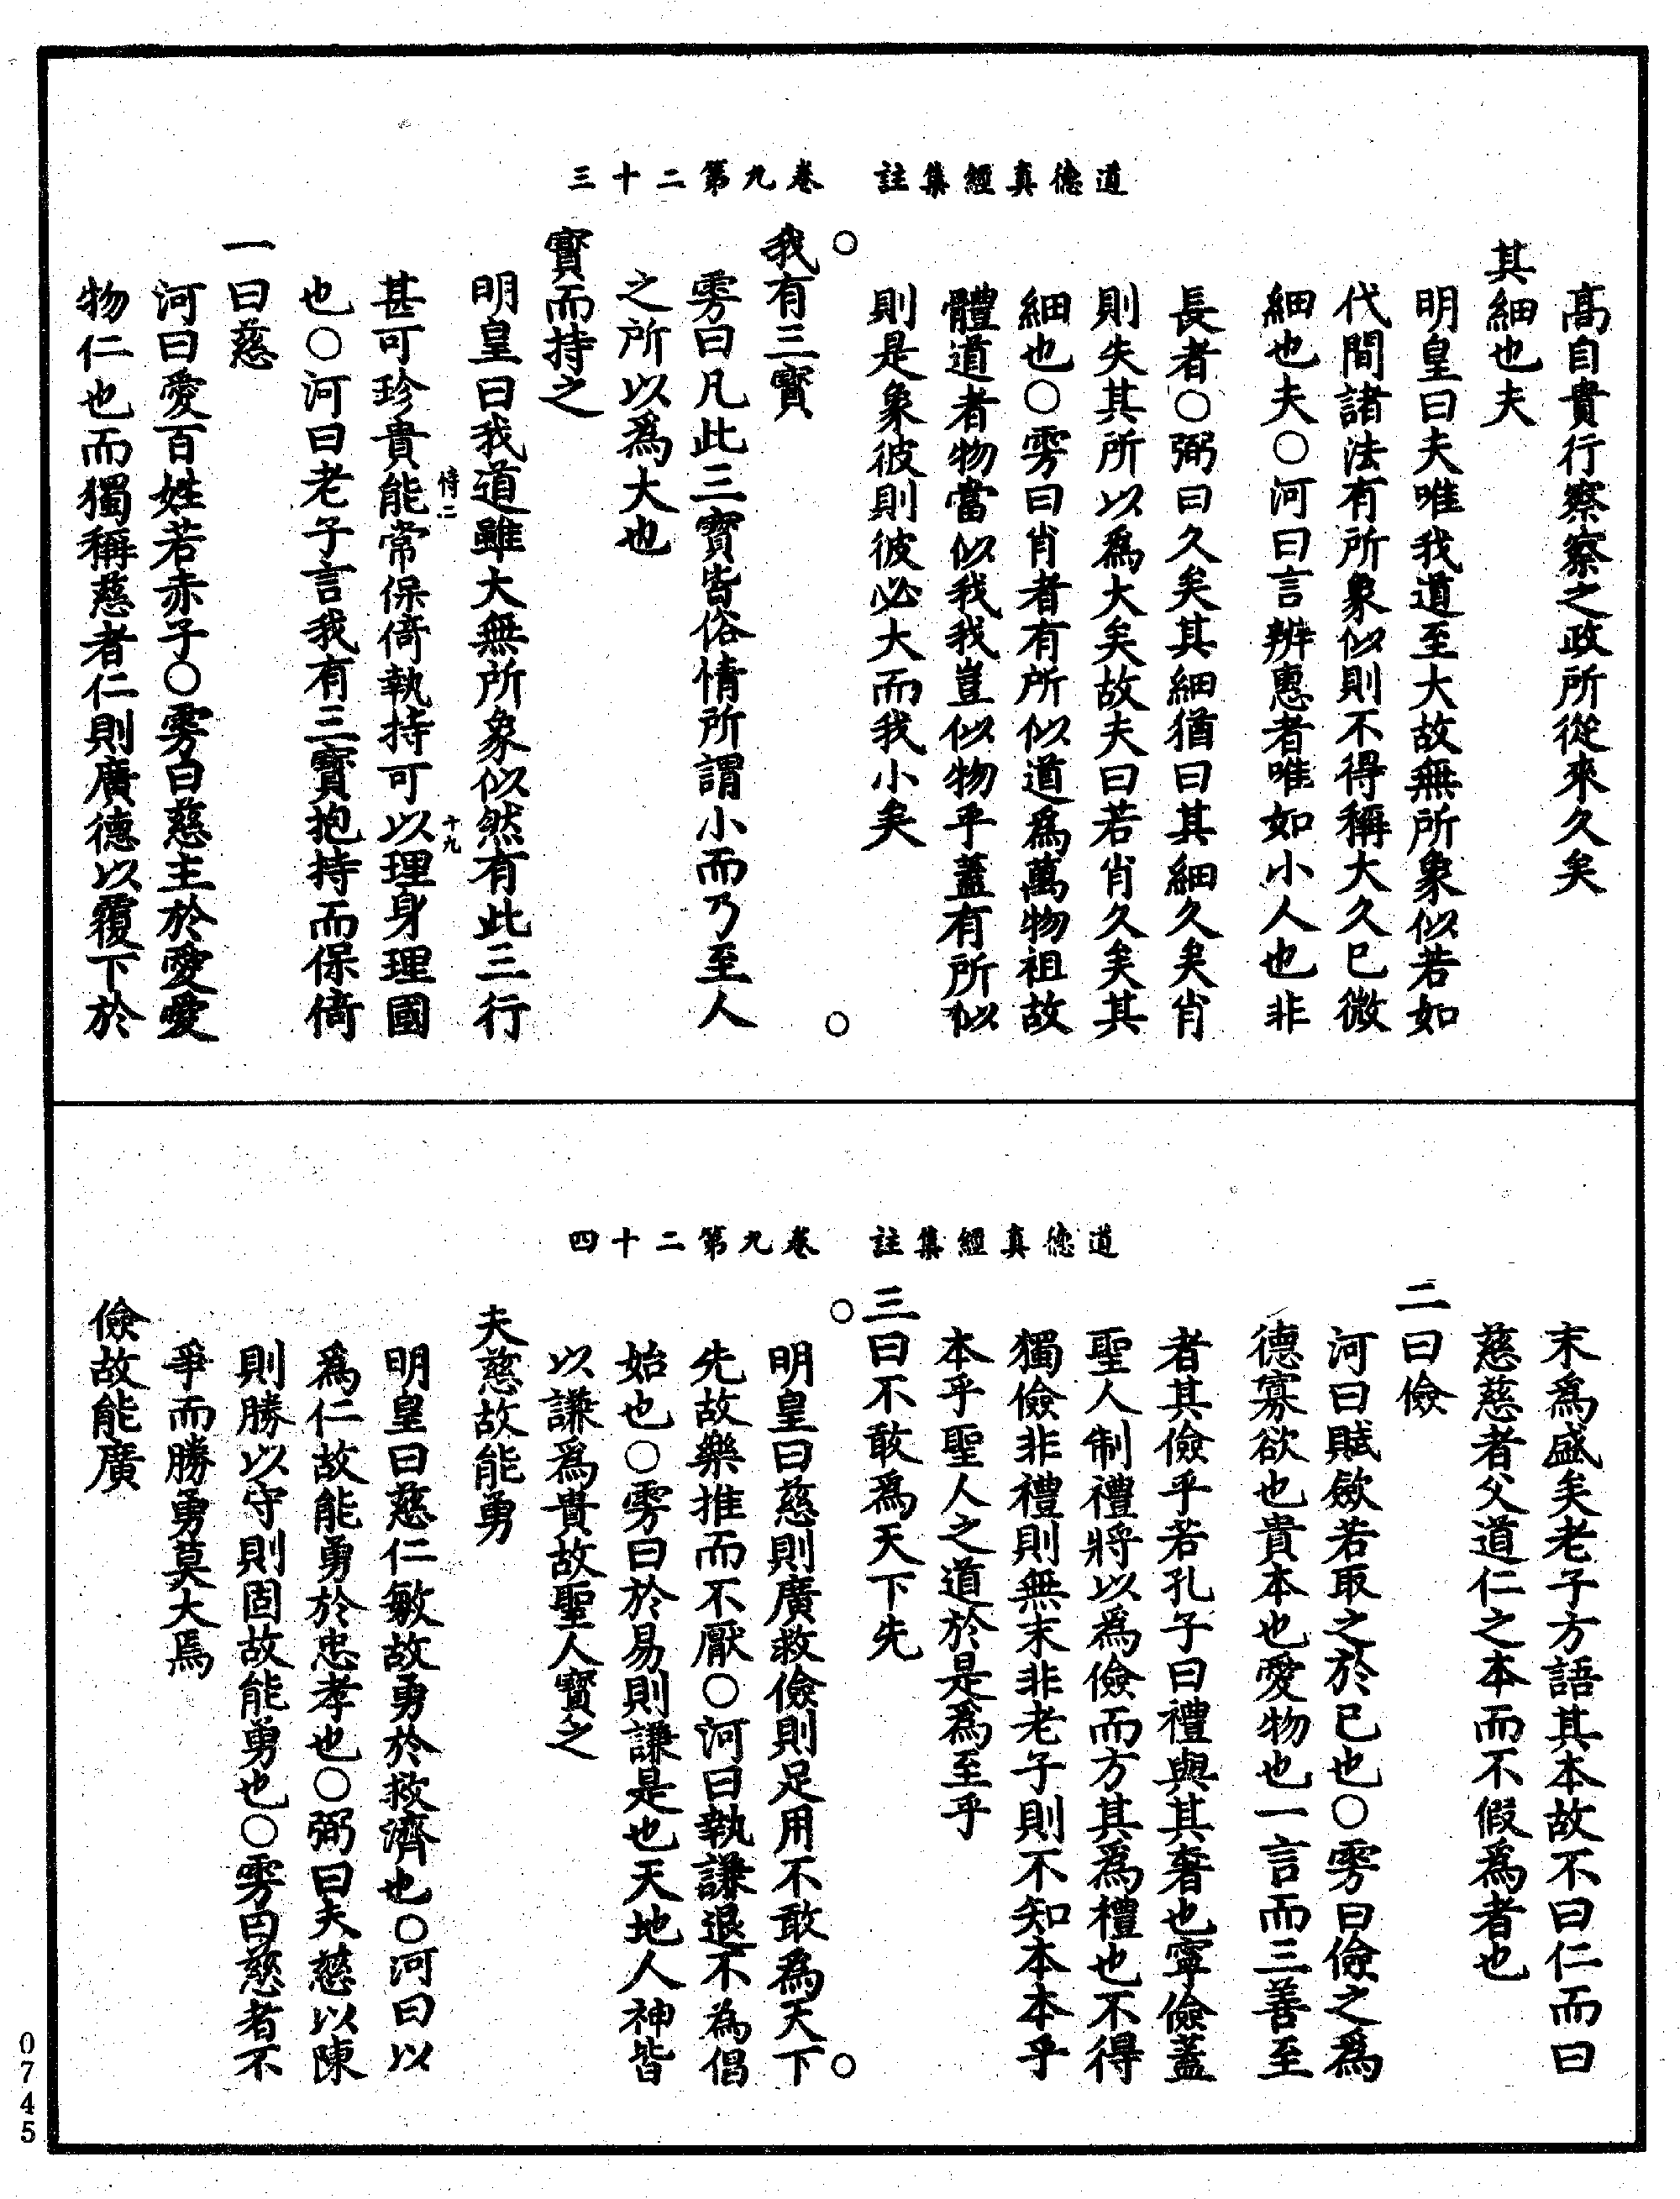 道德真經集註　卷九第二十三
高自貴行察察之政所從來久矣
其細也夫
明皇曰夫唯我道至大故無所象似若如
代間諸法有所象似則不得稱大久已微
細也夫○河曰言辨惠者唯如小人也非
長者○弼曰久矣其細猶曰其細久矣肖
則失其所以為大矣故夫曰若肖久矣其
細也○雱曰肖者有所似道為萬物祖故
體道者物當似我我豈似物乎蓋有所似
則是象彼則彼必大而我小矣
○　○
我有三寳
雱曰凡此三寳皆俗情所謂小而乃至人
之所以為大也
寳而持之
明皇曰我道雖大無所象似然有此三行
恃二　十九
甚可珍貴能常保倚執持可以理身理國
也○河曰老子言我有三寳抱持而保倚
一曰慈
河曰愛百姓若赤子○雱曰慈主於愛愛
物仁也而獨稱慈者仁則廣德以覆下於
道德真經集註　卷九第二十四
末為盛矣老子方語其本故不曰仁而曰
慈慈者父道仁之本而不假為者也
二曰儉
河曰賦斂若取之於已也○雱曰儉之為
德寡欲也貴本也愛物也一言而三善至
者其儉乎若孔子曰禮與其奢也寧儉蓋
聖人制禮將以為儉而方其為禮也不得
獨儉非禮則無末非老子則不知本本乎
本乎聖人之道於是為至乎
三曰不敢為天下先
○　○
明皇曰慈則廣救儉則足用不敢為天下
先故樂推而不厭○河曰執謙退不為倡
始也○雱曰於易則謙是也天地人神皆
以謙為貴故聖人寳之
夫慈故能勇
明皇曰慈仁敏故勇於救濟也○河曰以
為仁故能勇於忠孝也○弼曰夫慈以陳
則勝以守則固故能勇也○雱曰慈者不
爭而勝勇莫大焉
儉故能廣
0745